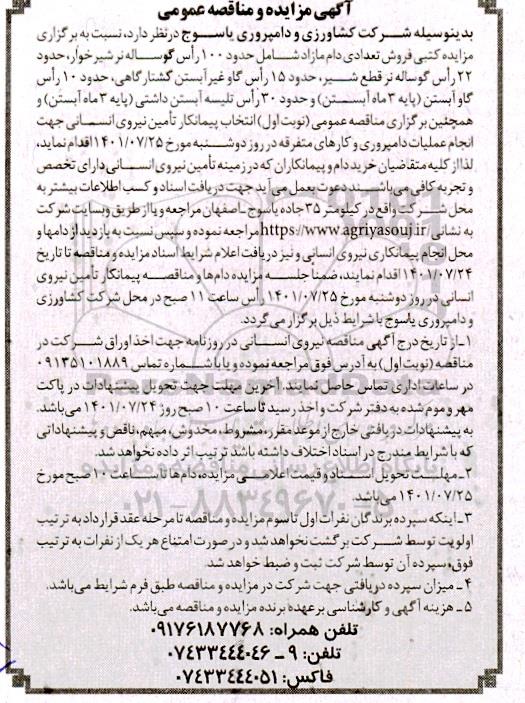 آگهی مزایده و مناقصه عمومی
بدینوسیله شرکت کشاورزی و دامپروری یاسوج درنظر دارد، نسبت به برگزاری
مزایده کتبی فروش تعدادی دام مازاد شامل حدود ۱۰۰ رأس گوساله نر شیرخوار، حدود
۲۲ رأس گوساله نر قطع شیر، حدود ۱۵ رأس گاو غیر آبستن گشتارگاهی، حدود ۱۰ رأس
گاو آبستن (پایه ۳ ماه آبستن) و حدود ۳۰ رأس تلیسه آبستن داشتی (پایه ۳ ماه آبستن) و
همچنین برگزاری مناقصه عمومی (نوبت اول) انتخاب پیمانکار تأمین نیروی انسانی جهت
انجام عملیات دامپروری و کارهای متفرقه در روز دوشنبه مورخ ۱۴۰۱/۰۷/۲۵ اقدام نماید،
لذا از کلیه متقاضیان خرید دام و پیمانکاران که در زمینه تأمین نیروی انسانی دارای تخصص
و تجربه کافی می‌باشند دعوت بعمل می‌آید جهت دریافت اسناد و کسب اطلاعات بیشتر به
محل شرکت واقع در کیلومتر ۳۵ جاده یاسوج - اصفهان مراجعه و یا از طریق وبسایت شرکت
به نشانی https://www.agriyasouj.ir/ مراجعه نموده و سپس نسبت به بازدید از دامها و
محل انجام پیمانکاری نیروی انسانی و نیز دریافت اعلام شرایط اسناد مزایده و مناقصه تا تاریخ
۱۴۰۱/۰۷/۲۴ اقدام نمایند، ضمنا جلسه مزایده دام‌ها و مناقصه پیمانکار تأمین نیروی
انسانی در روز دوشنبه مورخ ۱۴۰۱/۰۷/۲۵ رأس ساعت ۱۱ صبح در محل شرکت کشاورزی
و دامپروری یاسوج با شرایط ذیل برگزار می‌گردد.
۱- از تاریخ درج آگهی مناقصه نیروی انسانی در روزنامه جهت اخذ اوراق شرکت در
مناقصه (نوبت اول) به آدرس فوق مراجعه نموده و یا با شماره تماس ۰۹۱۳۵۱۰۱۸۸۹
در ساعات اداری تماس حاصل نمایند. آخرین مهلت جهت تحویل پیشنهادات در پاکت
مهر و موم شده به دفتر شرکت و اخذ رسید تا ساعت ۱۰ صبح روز ۱۴۰۱/۰۷/۲۴ می‌باشد.
به پیشنهادات دریافتی خارج از موعد مقرر، مشروط، مخدوش، مبهم، ناقص و پیشنهاداتی
که با شرایط مندرج در اسناد اختلاف داشته باشد ترتیب اثر داده نخواهد شد.
۲- مهلت تحویل اسناد و قیمت اعلامی مزایده، دام‌ها تا ساعت ۱۰ صبح مورخ
۱۴۰۱/۰۷/۲۵ می‌باشد.
۳- اینکه سپرده برندگان نفرات اول تا سوم مزایده و مناقصه تا مرحله عقد قرارداد به ترتیب
اولویت توسط شرکت برگشت نخواهد شد و در صورت امتناع هر یک از نفرات به ترتیب
فوق، سپرده آن توسط شرکت ثبت و ضبط خواهد شد.
۴- میزان سپرده دریافتی جهت شرکت در مزایده و مناقصه طبق فرم شرایط می‌باشد.
۵- هزینه آگهی و کارشناسی بر عهده برنده مزایده و مناقصه می‌باشد.
تلفن همراه: ۰۹۱۷۶۱۸۷۷۶۸
تلفن: ۹ - ۰۷۴۳۳۴۴۴۰۴۶
فاکس: ۰۷۴۳۳۴۴۴۰۵۱